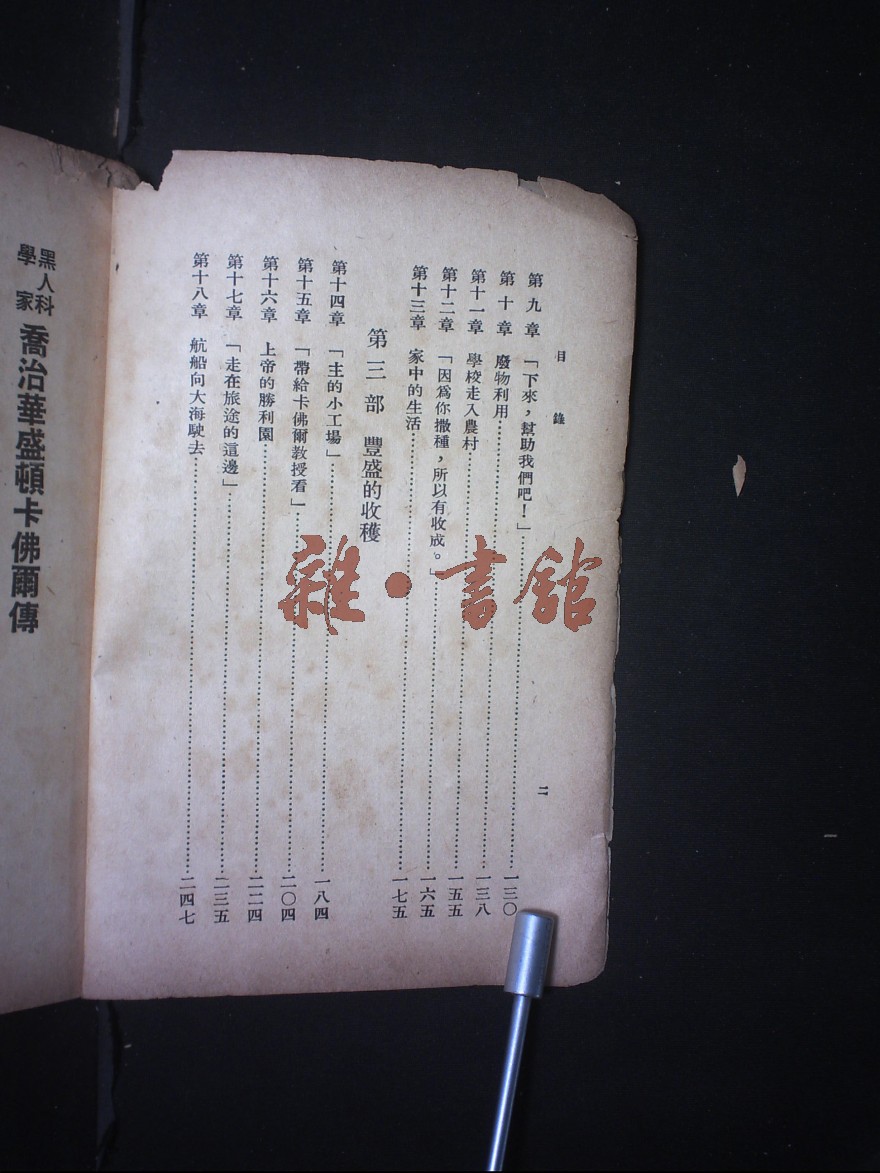 目錄
二
第九章 「下來，幫助我們吧！」……一三〇
第十章 廢物利用……一三八
第十一章 學校走入農村……一五五
第十二章 「因爲你撒種，所以有收成。」……一六五
第十三章 家中的生活……一七五
第三部 豐盛的收穫
第十四章 「主的小工場」……一八四
第十五章 「帶給卡佛爾教授看」……二〇四
第十六章 上帝的勝利園……二二四
第十七章 「走在旅途的這邊」……二三五
第十八章 航船向大海駛去……二四七
黑人科學家
喬治華盛頓卡佛爾傳
雜·書館